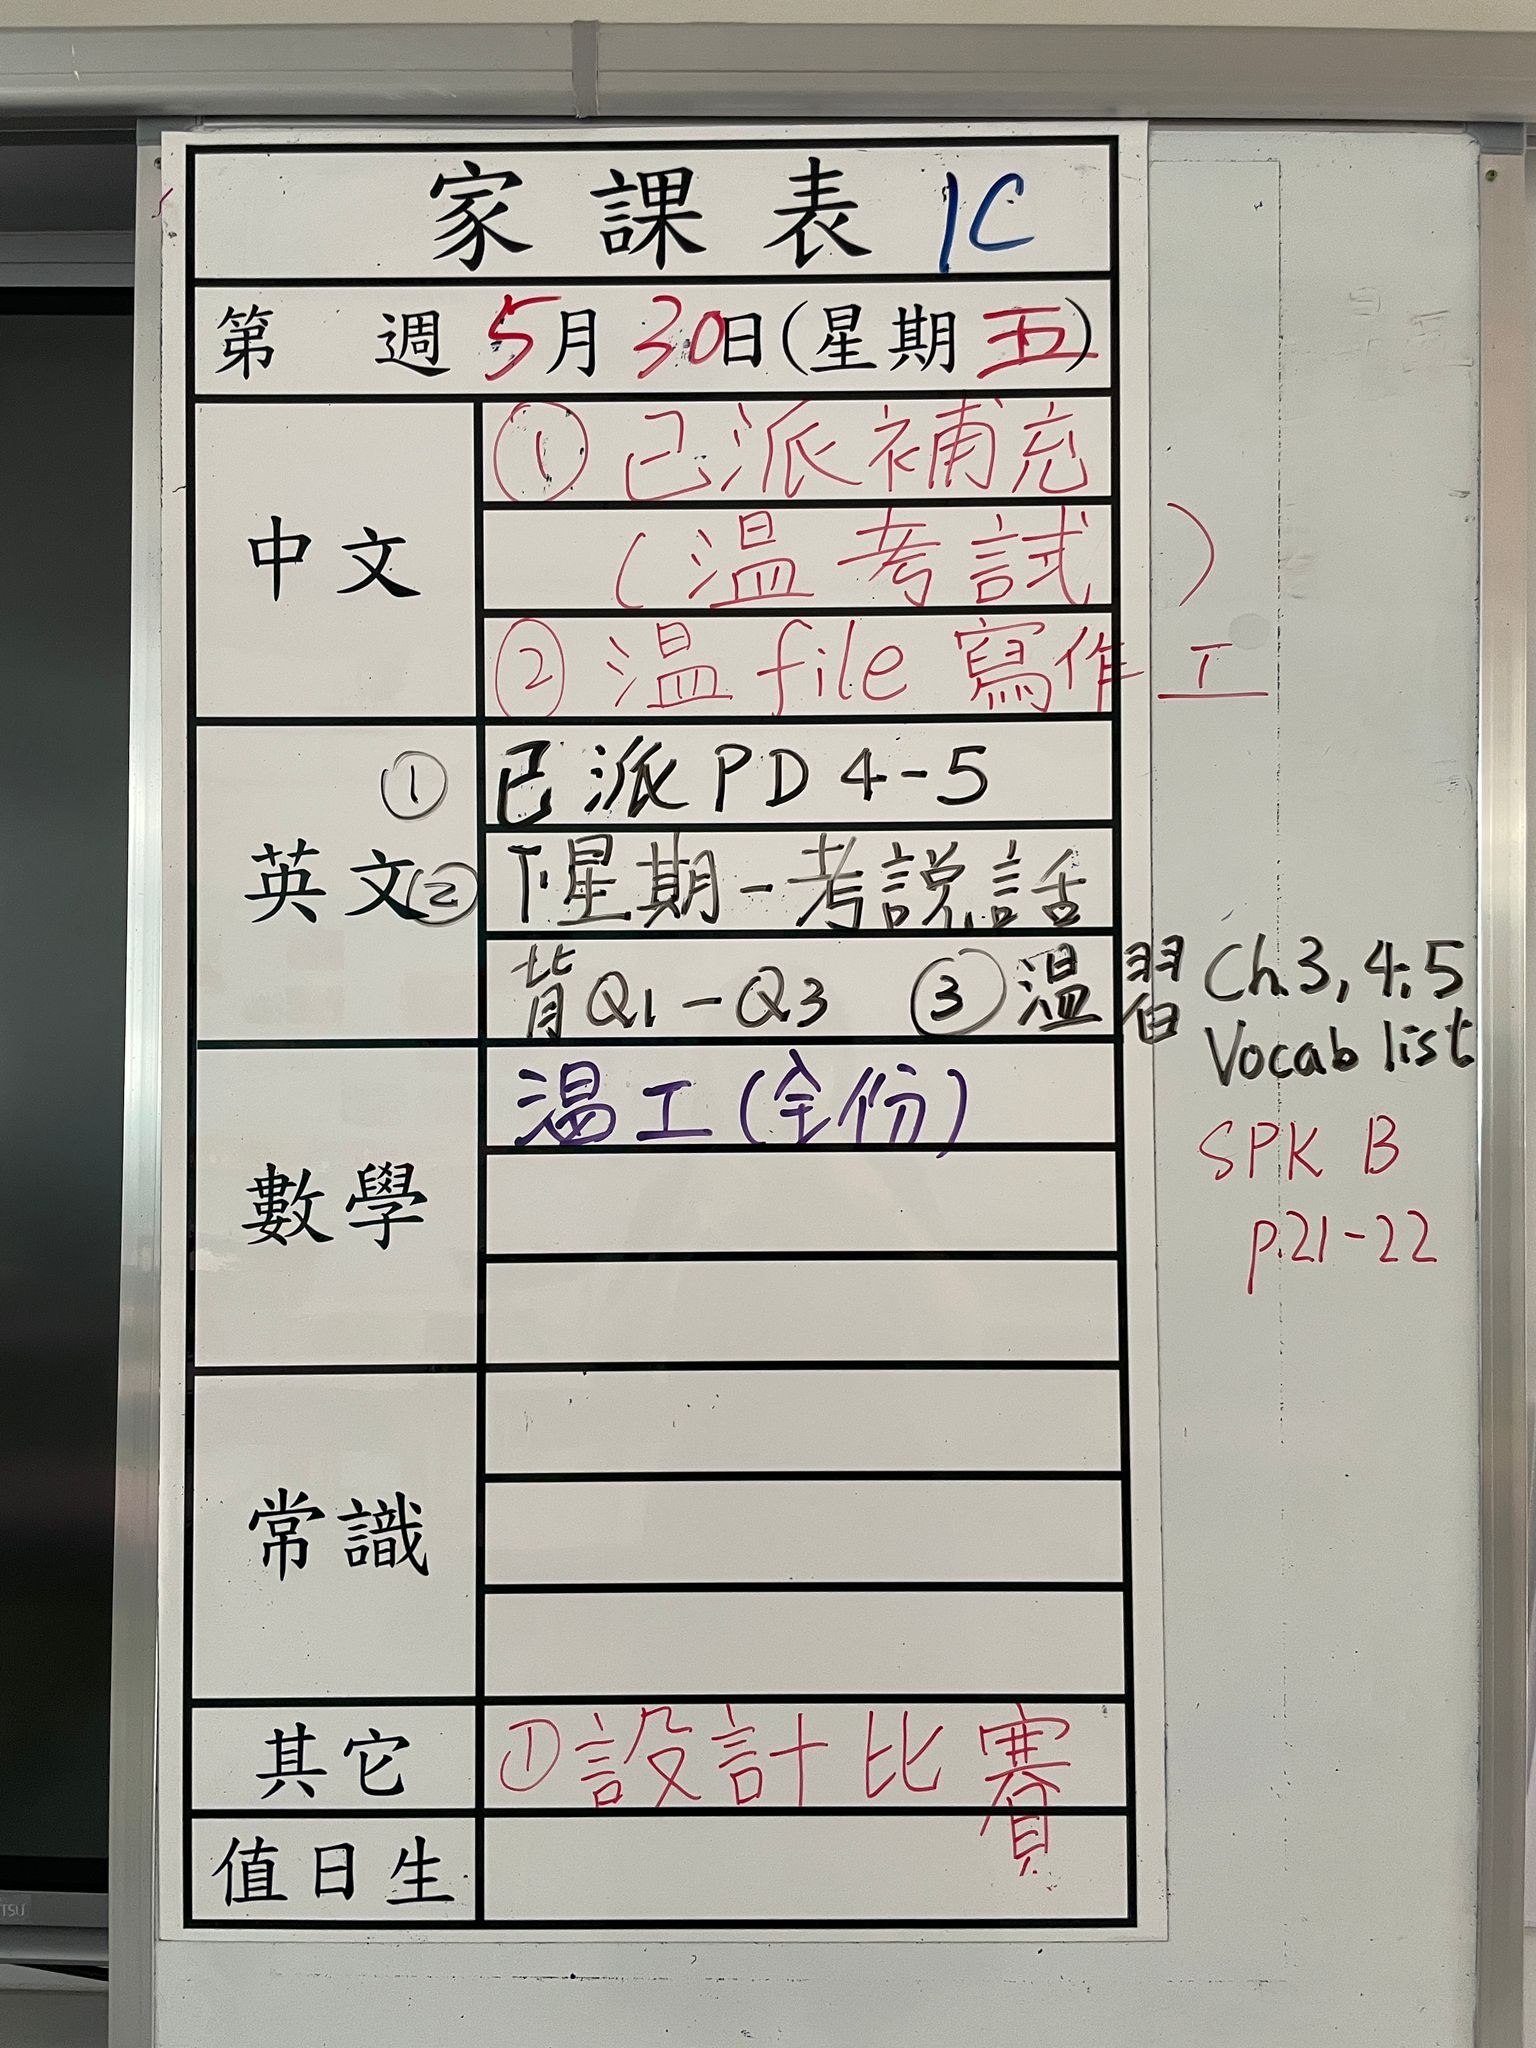 家課表 1C
第 週 5月30日(星期五)
中文
① 已派補充
(温考試)
② 温 file 寫作工
英文
① 已派 PD 4-5
② 下星期一考説話
背Q1-Q3 ③ 温習 Ch.3, 4.5
Vocab list
SPK B
p.21-22
數學
温工(全份)
常識
其它
① 設計比賽
值日生
TSU